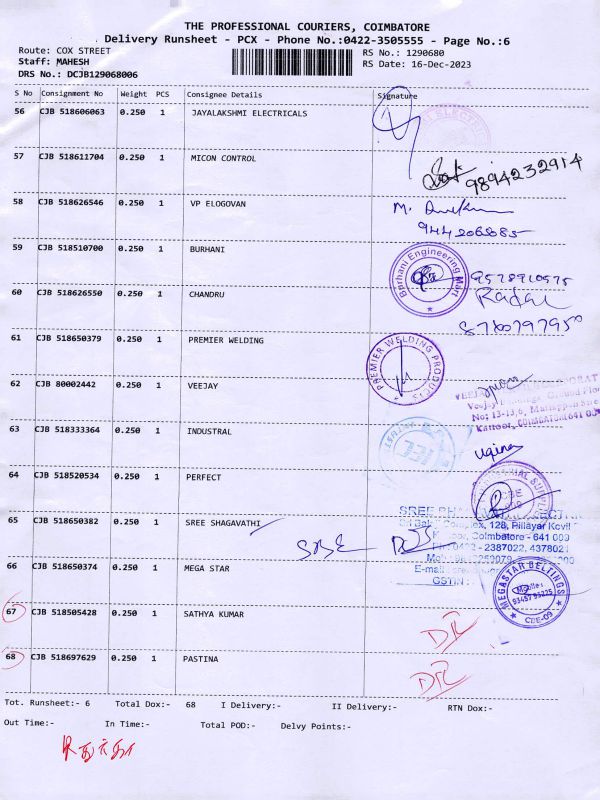 THE PROFESSIONAL COURIERS, COIMBATORE
Delivery Runsheet - PCX - Phone No.:0422-3505555 - Page No.:6
Route: COX STREET
RS No.: 1290680
Staff: MAHESH
RS Date: 16-Dec-2023
DRS No.: DCJB129068006
S No Consignment No Weight PCS Consignee Details Signature
56 CJB 518606063 0.250 1 JAYALAKSHMI ELECTRICALS
57 CJB 518611704 0.250 1 MICON CONTROL
9894232914
58 CJB 518626546 0.250 1 VP ELOGOVAN
M.
59 CJB 518510700 0.250 1 BURHANI
Burhani Engineering Mart
9578910575
60 CJB 518626550 0.250 1 CHANDRU
8760797950
61 CJB 518650379 0.250 1 PREMIER WELDING
PREMIER WELDING PRODUCTS
62 CJB 80002442 0.250 1 VEEJAY
No: 13-13,6,
Kattoor, COIMBATORE 641
63 CJB 518333364 0.250 1 INDUSTRAL
64 CJB 518520534 0.250 1 PERFECT
CBE
65 CJB 518650382 0.250 1 SREE SHAGAVATHI
SREE
128, Pillayar Kovil
Coimbatore - 641 009
2387022, 4378021
E-mail
GSTIN
66 CJB 518650374 0.250 1 MEGA STAR
MEGASTAR BELTINGS
CBE-09
67 CJB 518505428 0.250 1 SATHYA KUMAR
DL
68 CJB 518697629 0.250 1 PASTINA
DL
Tot. Runsheet:- 6 Total Dox:- 68 I Delivery:- II Delivery:- RTN Dox:-
Out Time:- In Time:- Total POD:- Delvy Points:-